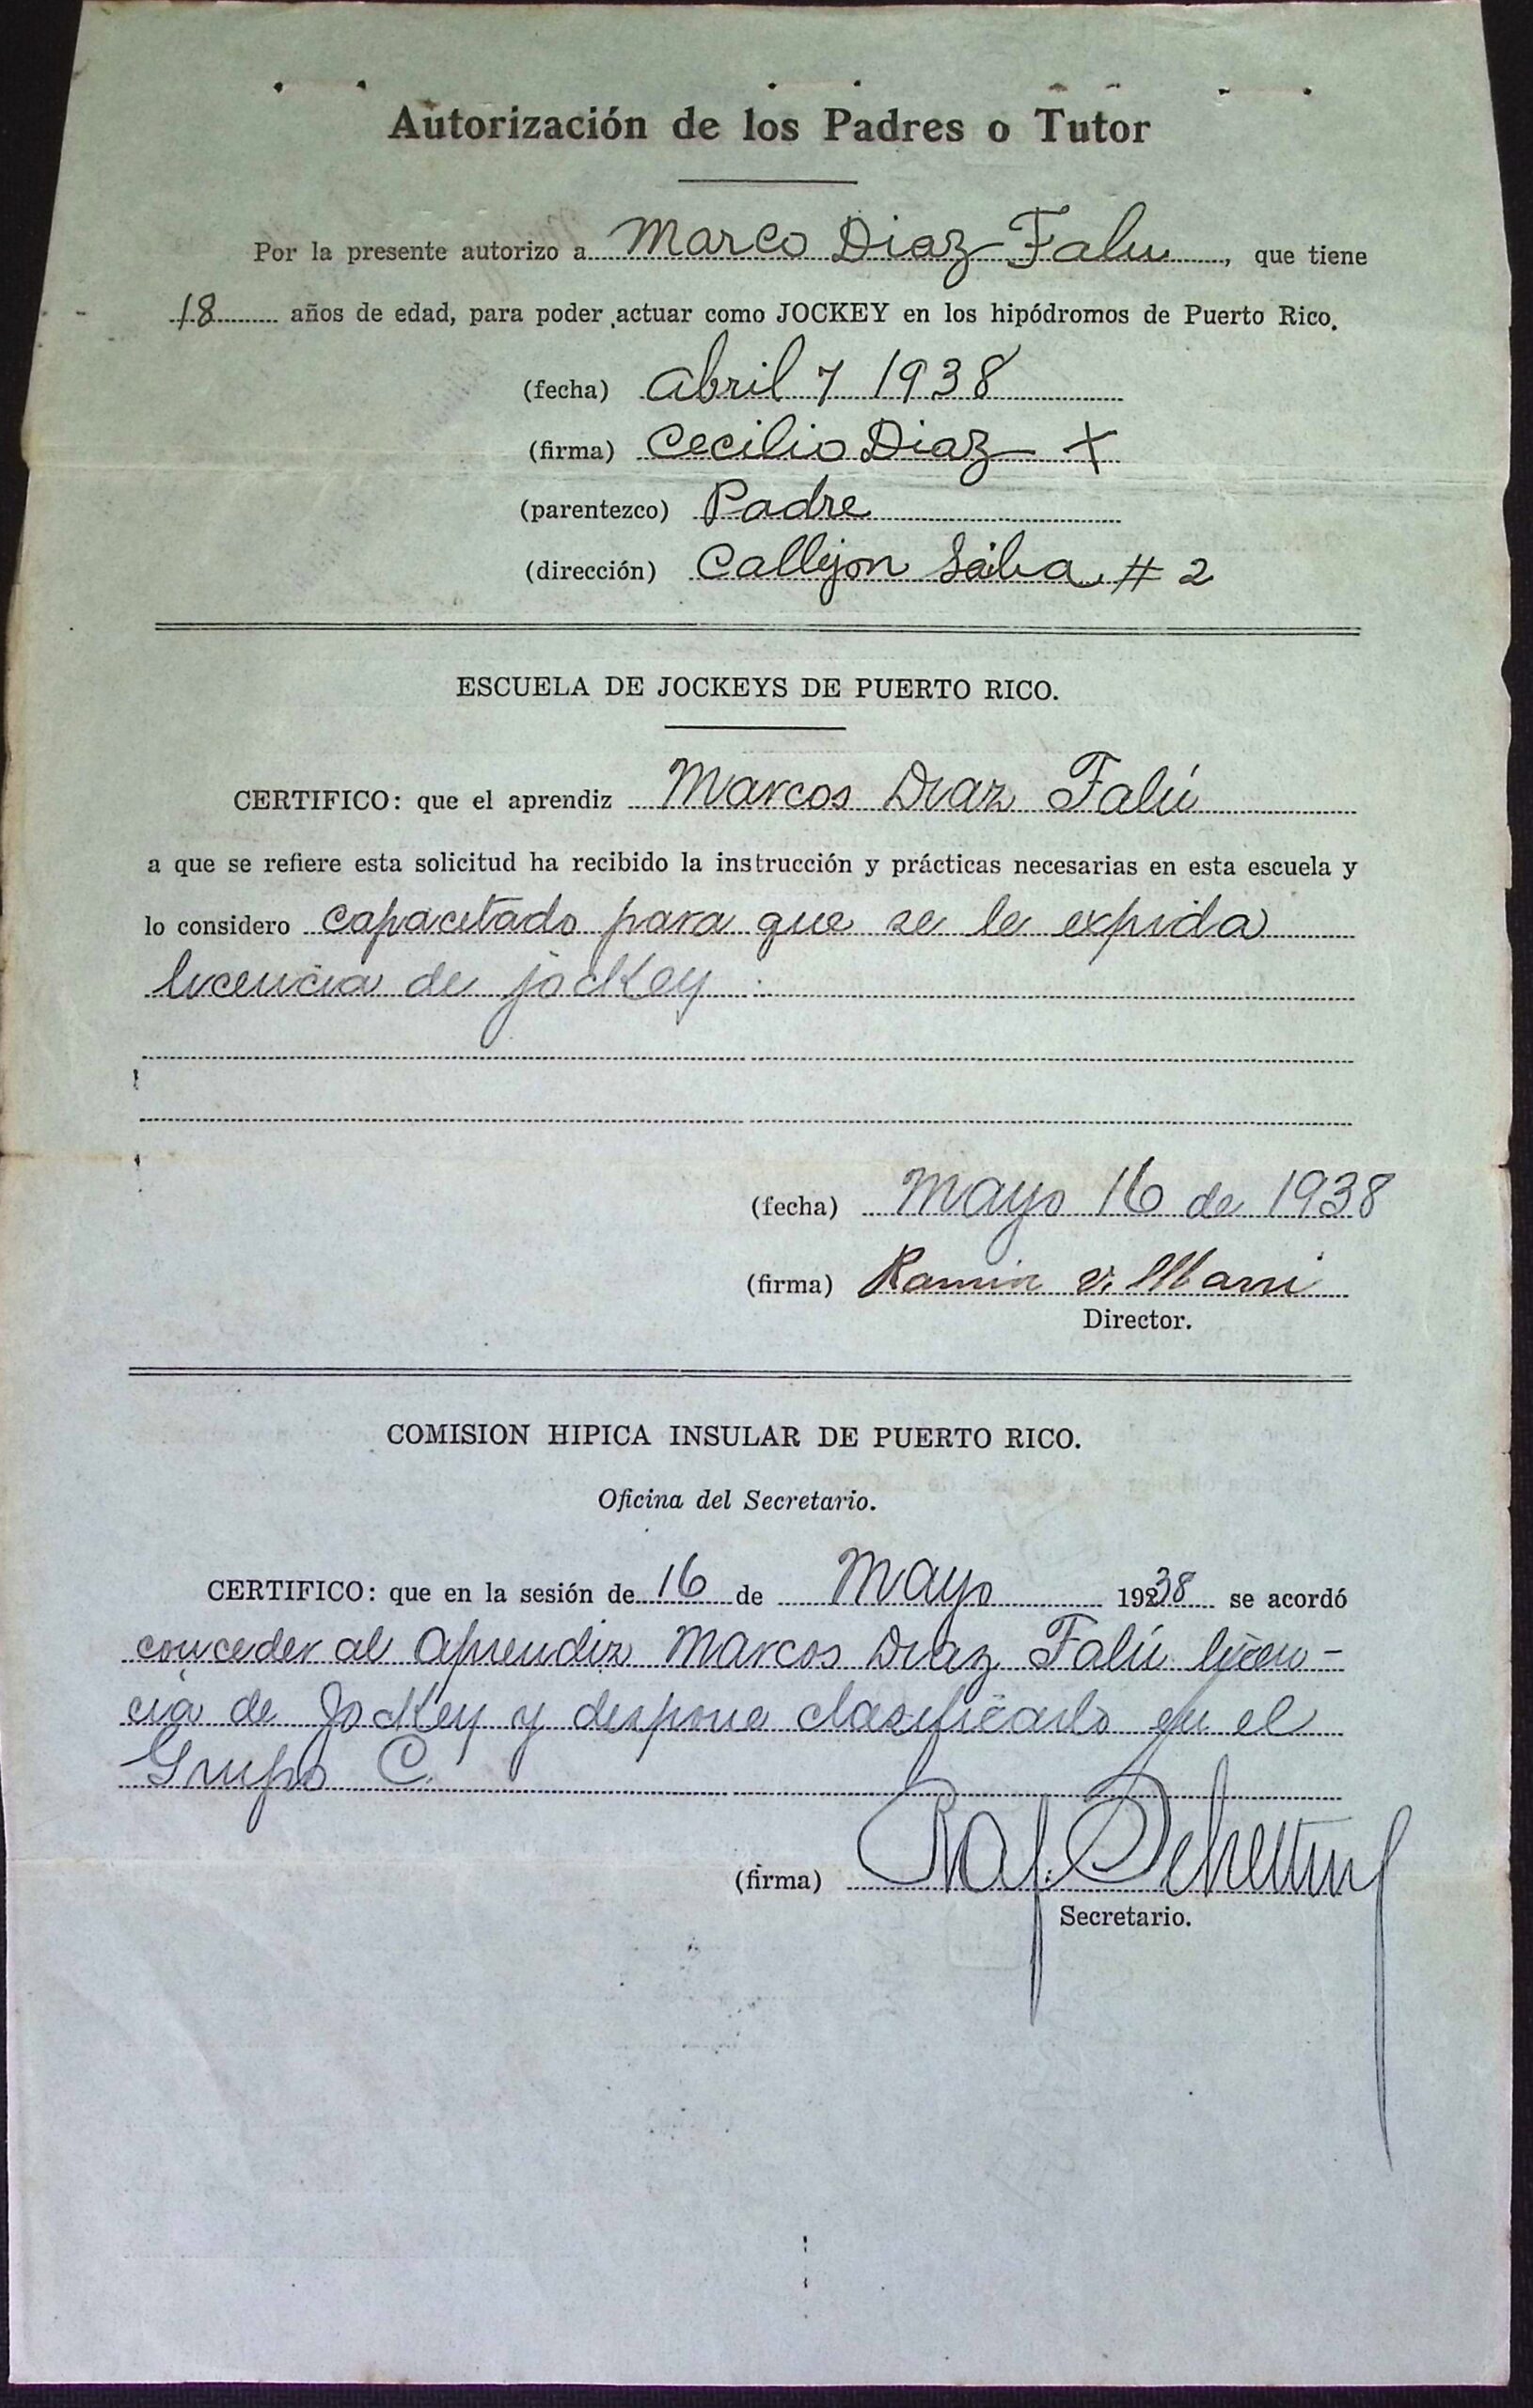 Autorización de los Padres o Tutor
Por la presente autorizo a Marco Diaz Falu, que tiene
18 años de edad, para poder actuar como JOCKEY en los hipódromos de Puerto Rico.
(fecha) abril 7 1938
(firma) Cecilio Diaz X
(parentezco) Padre
(dirección) Callejon # 2
ESCUELA DE JOCKEYS DE PUERTO RICO.
CERTIFICO: que el aprendiz Marcos Diaz Falú
a que se refiere esta solicitud ha recibido la instrucción y prácticas necesarias en esta escuela y
lo considero capacitado para que se le expida
licencia de jockey
(fecha) Mayo 16 de 1938
(firma)
Director.
COMISION HIPICA INSULAR DE PUERTO RICO.
Oficina del Secretario.
CERTIFICO: que en la sesión de 16 de Mayo 1938 se acordó
conceder al aprendiz Marcos Diaz Falú licen-
cia de Jockey y dispone clasificarlo en el
Grupo C.
(firma) Raf.
Secretario.